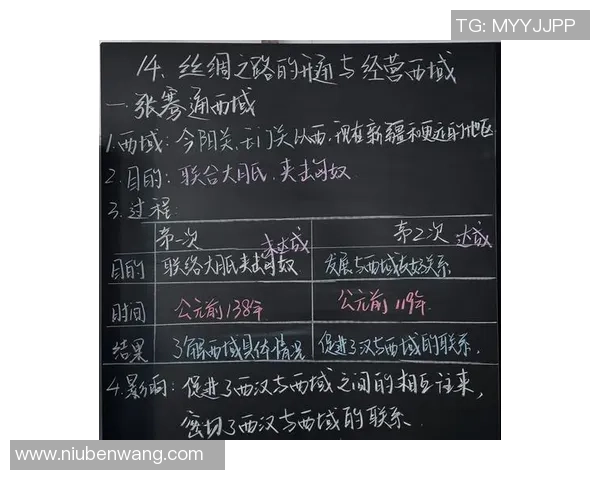 TG: MYYJJPP
14、丝绸之路的开通与经营西域
一.张骞通西域
1.西域：今阳关、玉门关以西，现在新疆和更远的地区
2.目的：联合大月氏，夹击匈奴
3.过程：
第一次 未达成 第2次 达成
目的 联络大月氏夹击匈奴 发展与西域友好关系
时间 公元前138年 公元前119年
结果 了解西域具体情况 促进了汉与西域的联系.
4.影响：促进了西汉与西域之间的相互往来，
密切了西汉与西域的联系.
www.niubenwang.com